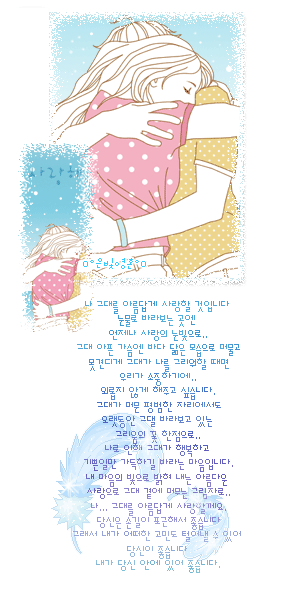 사랑해
o으빛영혼o
나 그대를 아름답게 사랑할 것입니다
눈물로 바라보는 곳엔
언제나 사랑의 눈빛으로..
그대 아픈 가슴엔 바다 닮은 모습으로 머물고
못견디게 그대가 나를 그리워할 때면
우리가 소중하기에..
외롭지 않게 해주고 싶습니다.
그대가 머문 평범한 자리에서도
오래동안 그대를 바라보고 있는
그리움의 꽃 한점으로..
나로 인해 그대가 행복하고
기쁨일만 가득하기 바라는 마음입니다.
내 마음의 빛으로 밝혀 내는 아름다운
사랑으로 그대 곁에 머무는 그림자로..
나... 그대를 아름답게 사랑할께요.
당신은 손길이 포근해서 좋습니다
그래서 내가 어떠한 고민도 털어낼 수 있어
당신이 좋습니다
내가 당신 안에 있어 좋습니다.